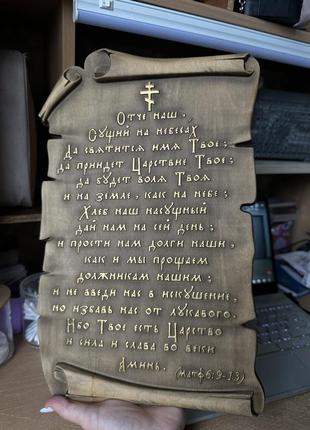 Отче наш,
Сущий на небесах
Да святится имя Твое;
да приидет Царствие Твое;
да будет воля Твоя
и на земле, как на небе;
Хлеб наш насущный
дай нам на сей день;
и прости нам долги наши,
как и мы прощаем
должникам нашим;
и не введи нас в искушение,
но избавь нас от лукавого.
Ибо Твое есть Царство
и сила и слава во веки
Аминь. (матф 6:9-13)